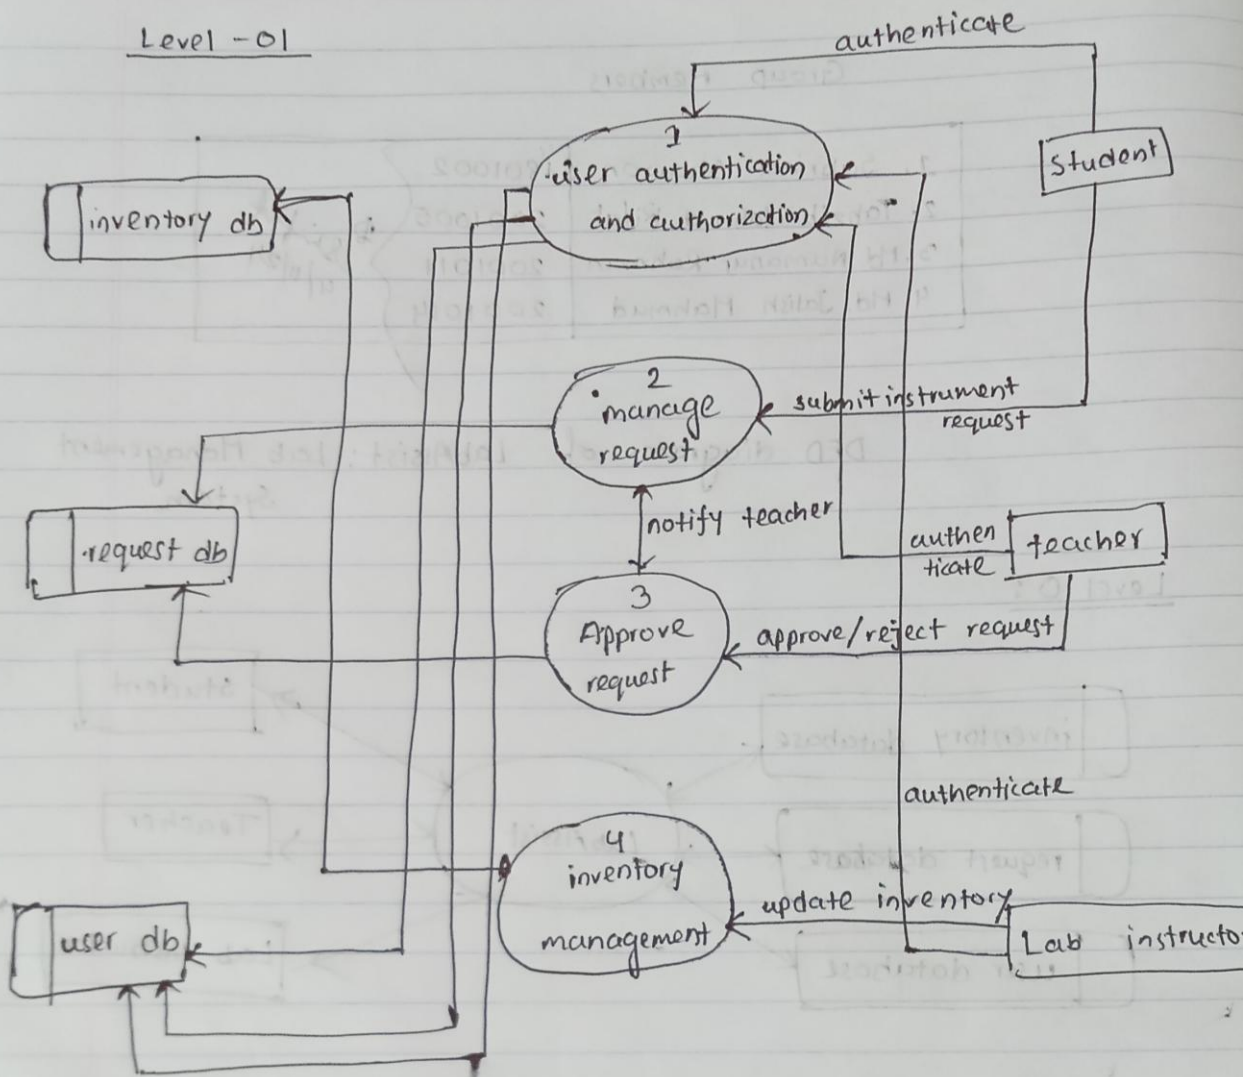 Level - 01
authenticate
Student
1
user authentication
and authorization
inventory db
2
manage
request
submit instrument
request
notify teacher
request db
authen
ticate
teacher
3
Approve
request
approve/reject request
authenticate
4
inventory
management
update inventory
Lab instructo
user db